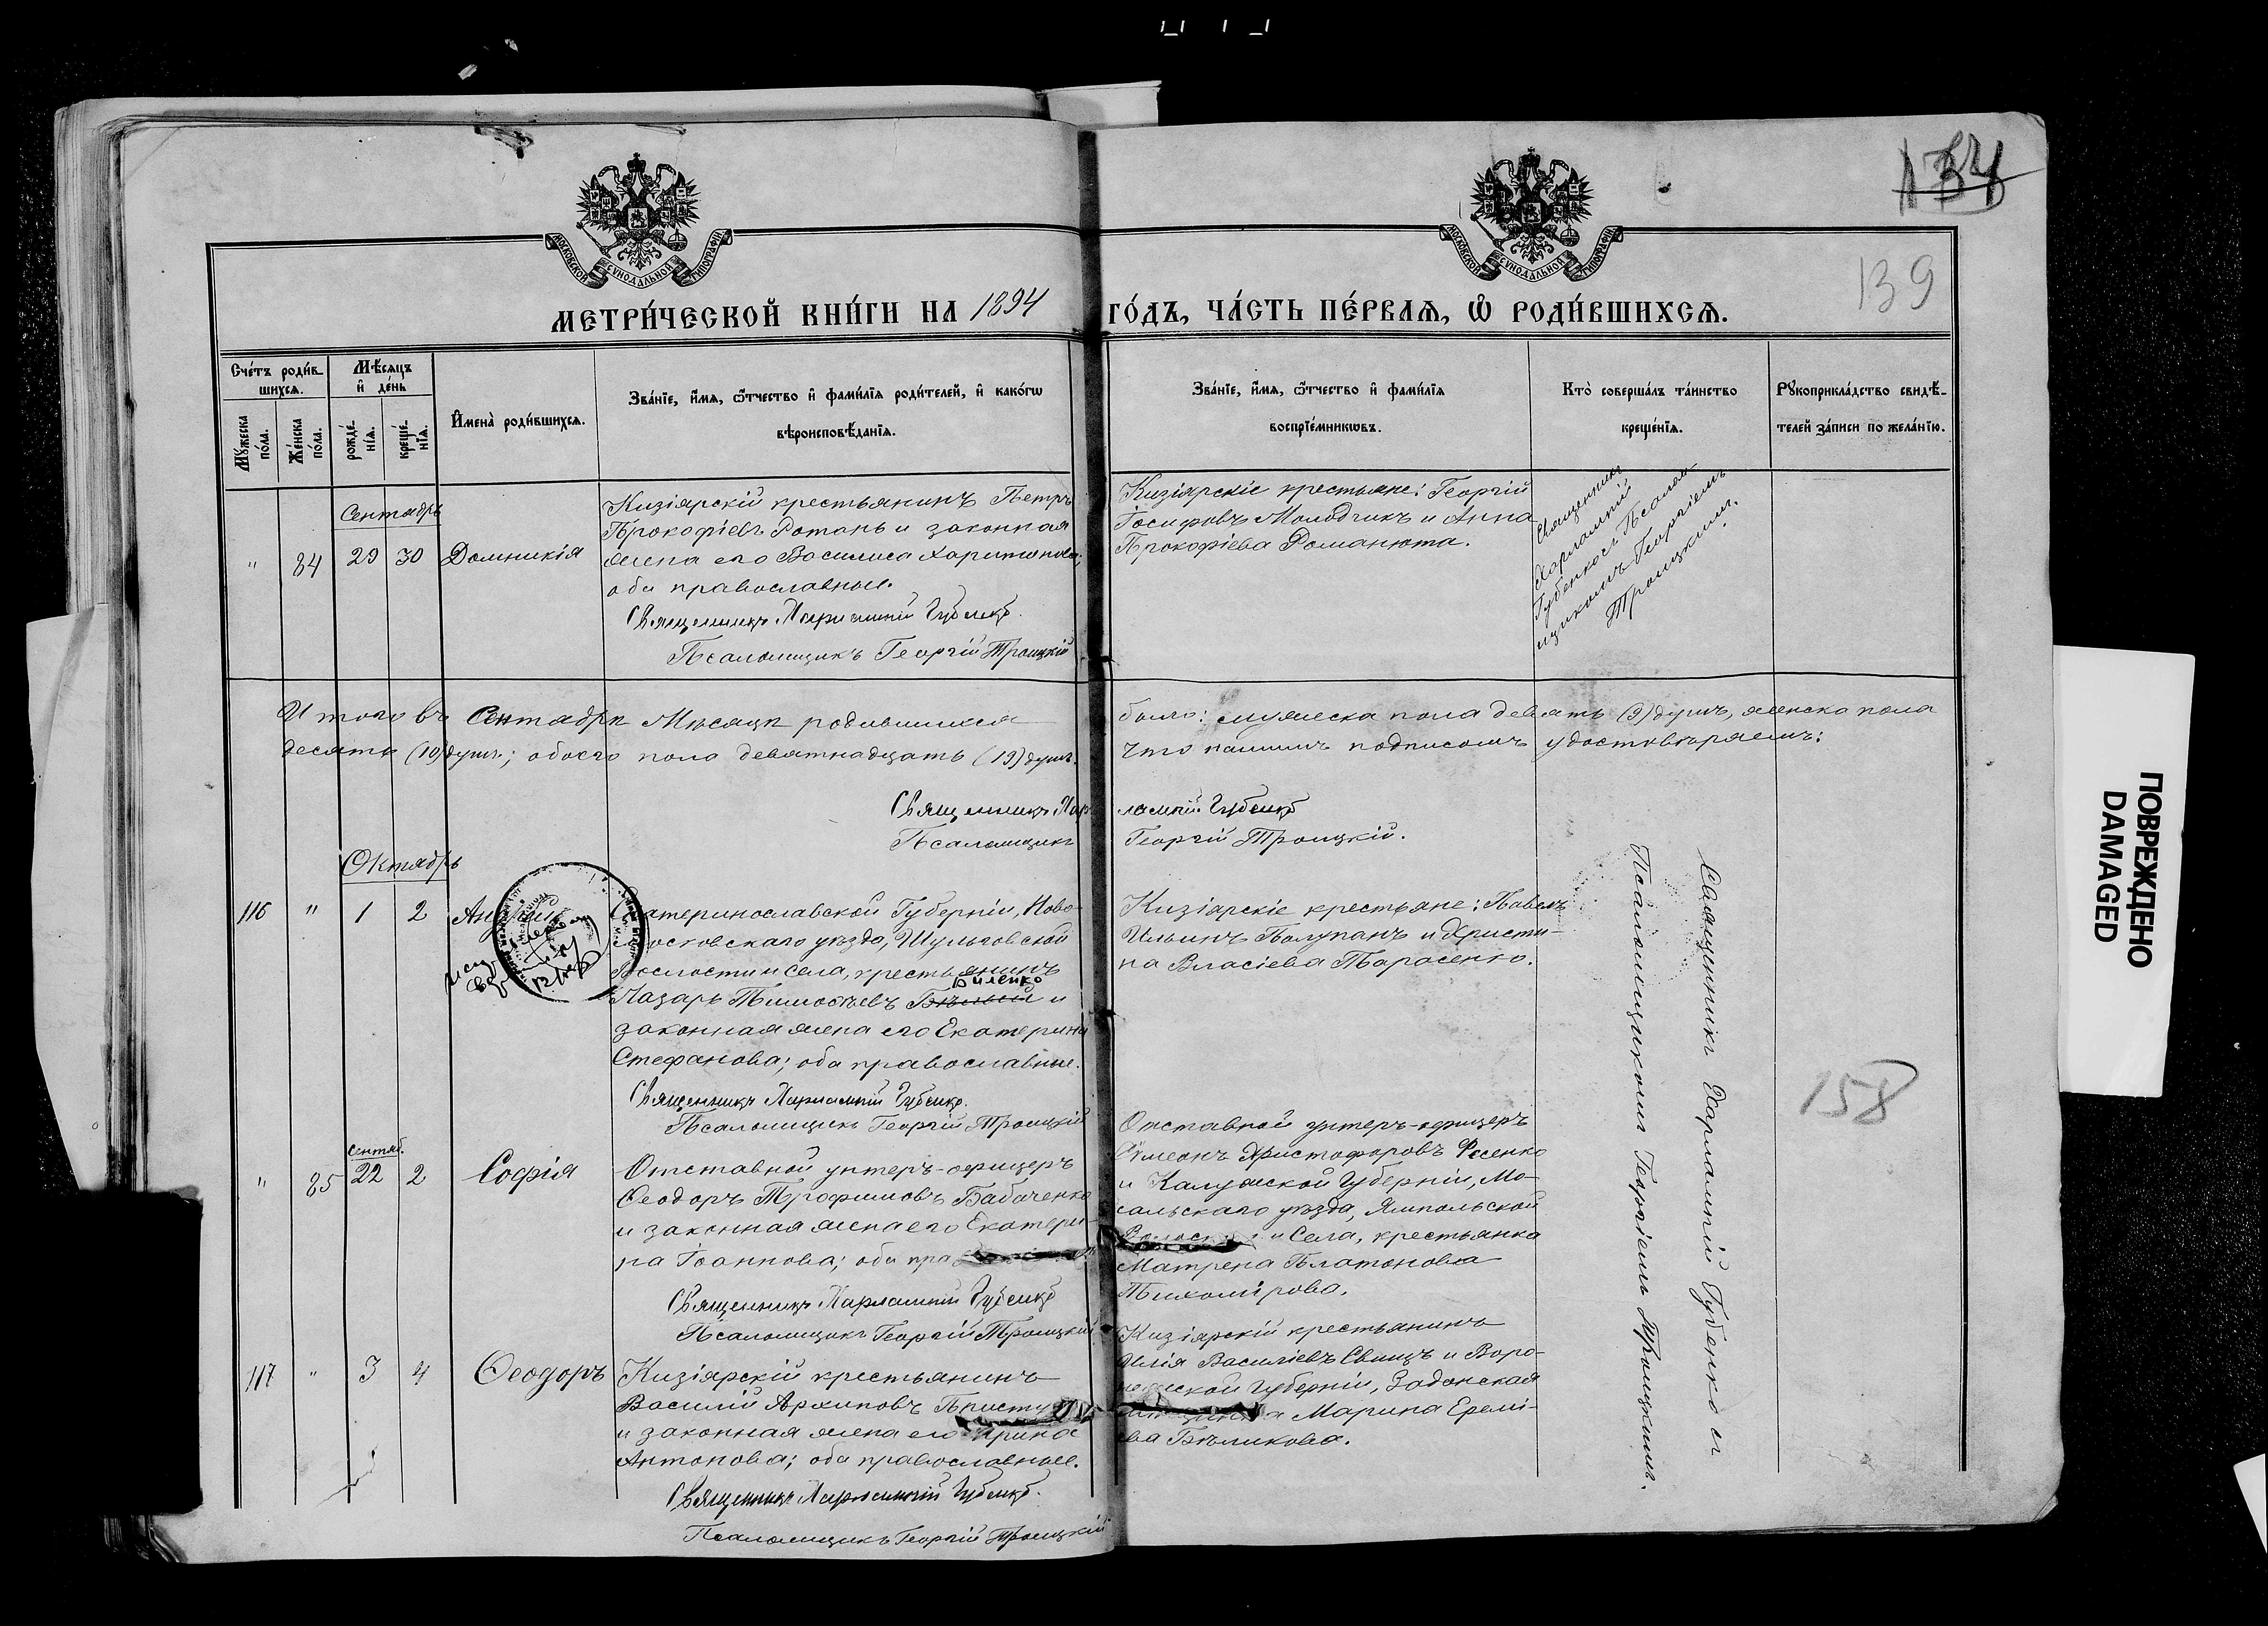 134
139
МОСКОВСКОЙ СѴНОДАЛЬНОЙ ТИПОГРАФІИ
МОСКОВСКОЙ СѴНОДАЛЬНОЙ ТИПОГРАФІИ
МЕТРИ́ЧЕСКОЙ КНИ́ГИ НА 1894 ГО́ДЪ, ЧА́СТЬ ПЕ́РВАѦ, Ѽ РОДИ́ВШИХСѦ.
Сче́тъ роди́вшихсѧ.
Мѣ́сѧцъ и҆ де́нь
Мꙋ́жеска по́ла.
Же́нска по́ла.
рожде́нїѧ.
креще́нїѧ.
И҆мена̀ роди́вшихсѧ.
Зва́нїе, и҆́мѧ, ѻ҆́тчество и҆ фами́лїѧ роди́телей, и҆ како́гѡ
вѣроисповѣ́данїѧ.
Зва́нїе, и҆́мѧ, ѻ҆́тчество и҆ фами́лїѧ
воспрїе́мникѡвъ.
Кто̀ соверша́лъ та́инство
креще́нїѧ.
Рꙋкоприкла́дство свидѣ́-
телей за́писи по жела́нїю.
Сентябрь
" 84 29 30 Домникія
Кизіярскій крестьянинъ Петръ
Прокофіевъ Ротань и законная
жена его Василиса Харитонова;
оба православные.
Священникъ Харлампій Губенко.
Псаломщикъ Георгій Троицкій
Кизіярскіе крестьяне: Георгій
Іосифовъ Молодчикъ и Анна
Прокофіева Романюта.
Священникъ
Харлампій
Губенко съ Псалом
щикомъ Георгіемъ
Троицкимъ.
Итого въ Сентябрѣ Мѣсяцѣ родившихся было: мужеска пола девять (9) душъ, женска пола
десять (10) душъ; обоего пола девятнадцать (19) душъ. Что нашимъ подписомъ удостовѣряемъ:
Священникъ Харлампій Губенко
Псаломщикъ Георгій Троицкій.
Октябрь
116 " 1 2 Андрей
Екатеринославской Губерніи, Ново-
московскаго уѣзда, Шульговской
Волости и села, крестьянинъ
Биленко
Лазарь Тимофѣевъ Бѣлый и
законная жена его Екатерина
Стефанова; оба православные.
Священникъ Харлампій Губенко.
Псаломщикъ Георгій Троицкій
Кизіярскіе крестьяне: Павелъ
Ильинъ Балупанъ и Христи-
на Власіева Тарасенко.
Священникъ Харлампій Губенко съ
Псаломщикомъ Георгіемъ Троицкимъ.
158
Сентяб.
" 85 22 2 Софія
Отставной унтеръ-офицеръ
Ѳеодоръ Трофимовъ Бабаченко
и законная жена его Екатери-
на Іоаннова; оба пра
Священникъ Харлампій Губенко
Псаломщикъ Георгій Троицкій
Отставной унтеръ-офицеръ
Сѵмеонъ Христофоровъ Фесенко
и Калужской Губерніи, Мо-
сальскаго уѣзда, Ямпольской
и Села, крестьянка
Матрена Платонова
Тихомірова.
117 " 3 4 Ѳеодоръ
Кизіярскій крестьянинъ
Василій Архиповъ
и законная жена его Ирина
Антонова; оба православные.
Священникъ Харлампій Губенко.
Псаломщикъ Георгій Троицкій
Кизіярскій крестьянинъ
Илія Василіевъ Свищъ и Воро-
нежской Губерніи, Задонская
Марина Еремі-
ева Бѣликова.
ПОВРЕЖДЕНО
DAMAGED